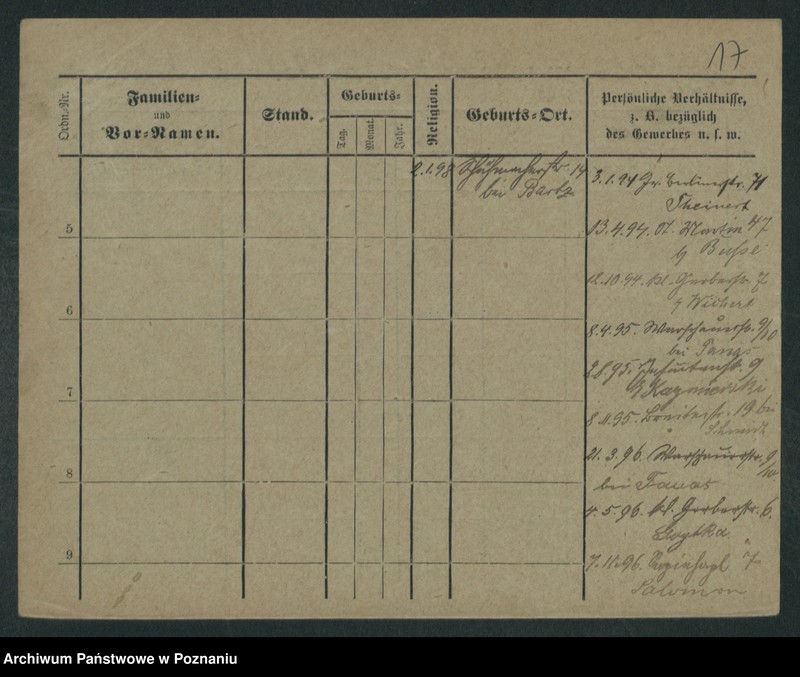 17
Ordn.-Nr.
Familien-
und
Vor-Namen.
Stand.
Geburts-
Tag.
Monat.
Jahr.
Religion.
Geburts-Ort.
Persönliche Verhältnisse,
z. B. bezüglich
des Gewerbes u. s. w.
2.1.98 Schuhmacherstr 14
bei Bartz
3.1.94 Gr. Berlinerstr. 71
Theinert
13.4.94. St. Martin 47
Busse
12.10.94. kl. Gerberstr 7
5
6
7
8
9
8.4.95. Warschauerstr. 9/10
bei
2.8.95. Jesuitenstr. 9
Kazmierski
8.11.95. Breitestr. 19 bei
Schmidt
21.3.96. Warschauerstr. 9/10
bei
4.5.96. kl. Gerberstr. 6.
7.11.96. 7
Salomon
Archiwum Państwowe w Poznaniu